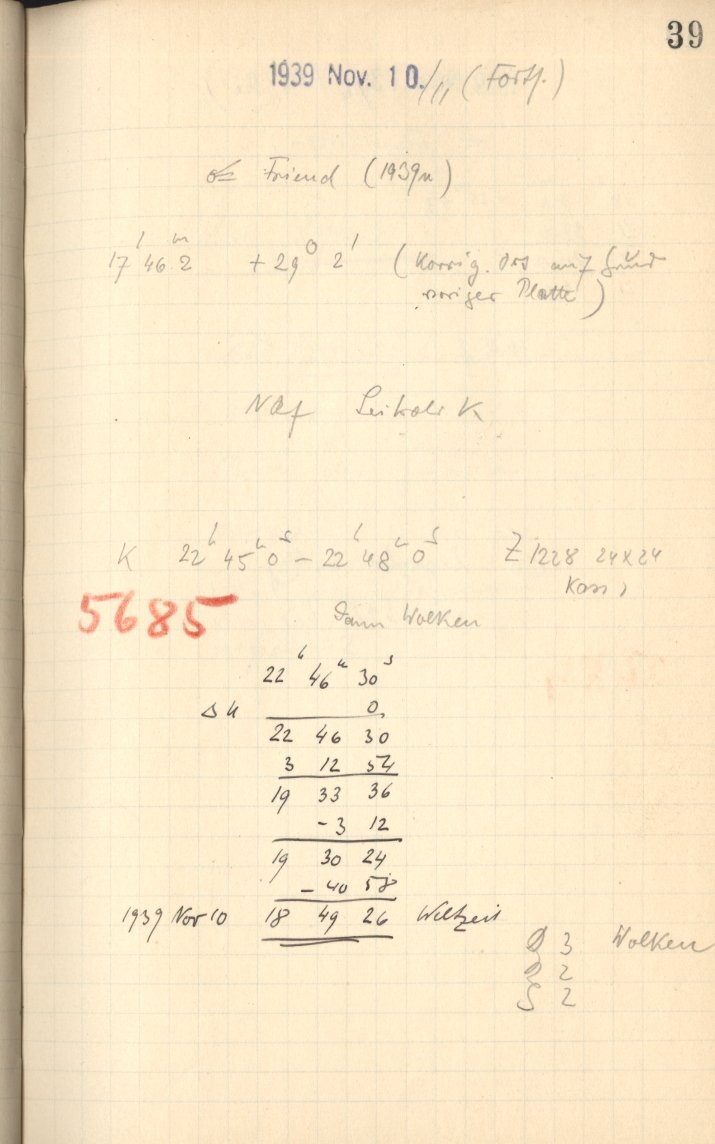 39
1939 Nov. 10./11 (Forts.)
☄ Friend (1939n)
17h 46m.2 + 29° 2' (Korrig. Ort auf Grund
voriger Platte)
K
K 22h 45m 0s – 22h 48m 0s Z 1228 24x24
Kass.
5685 Dann Wolken
22h 46m 30s
Δu 0.
22 46 30
3 12 54
19 33 36
-3 12
19 30 24
- 40 58
1939 Nov 10 18 49 26 Weltzeit
D 3 Wolken
2
S 2